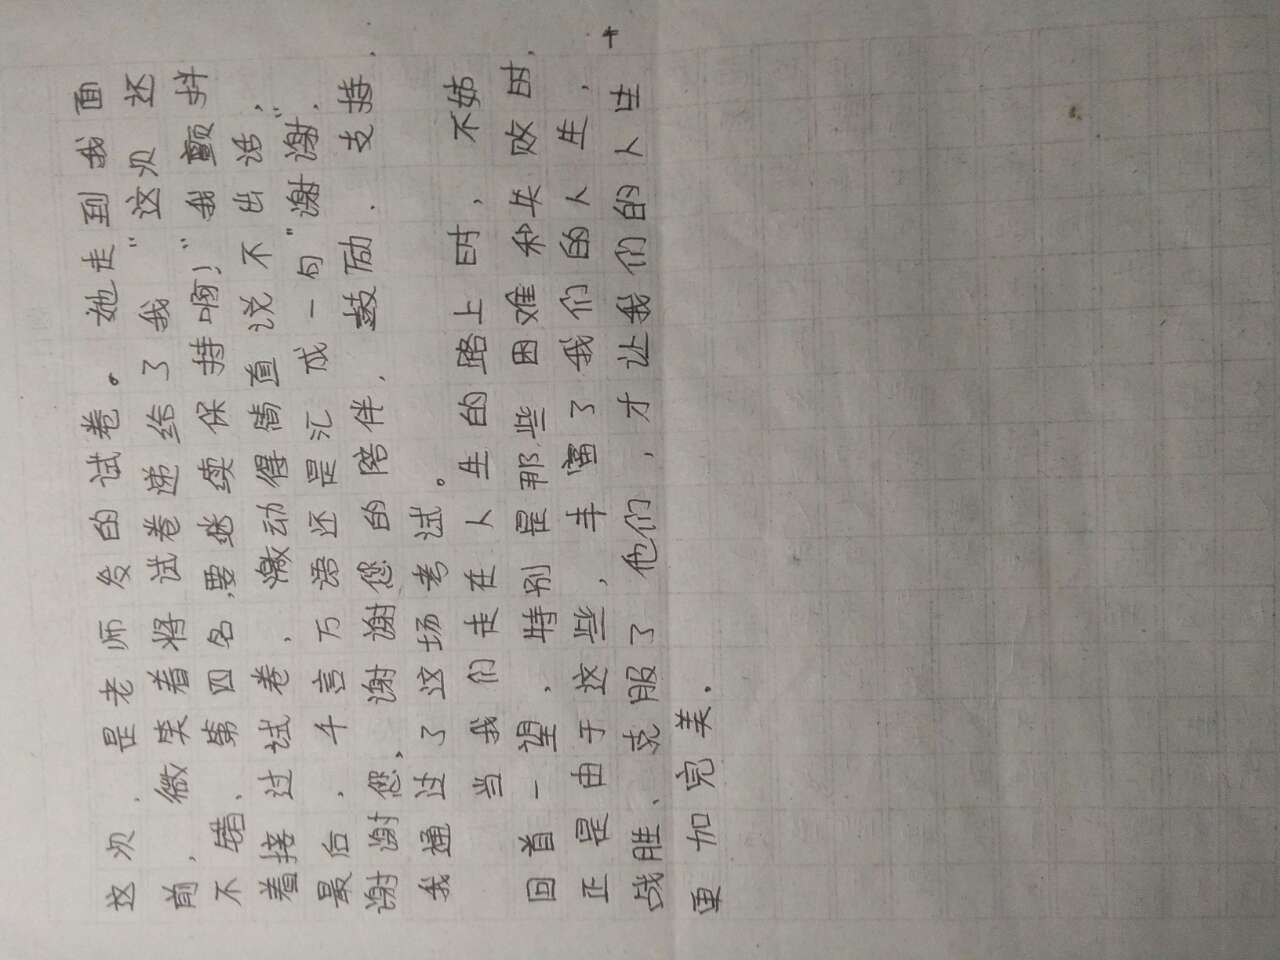 这次，是老师发的试卷。她走到我面
前，微笑着将试卷递给了我“这次还
不错，第四名，要继续保持啊！”我颤抖
着接过试卷，激动得简直说不出话，
最后，千言万语还是汇成一句“谢谢”，
谢谢您，谢谢您的陪伴，鼓励，支持，
我通过了这场考试。
当我们走在人生的路上时，不妨
回首一望，特别是那些困难和失败时，
正是由于这些，丰富了我们的人生，
战胜、克服了他们，才让我们的人生
更加完美，